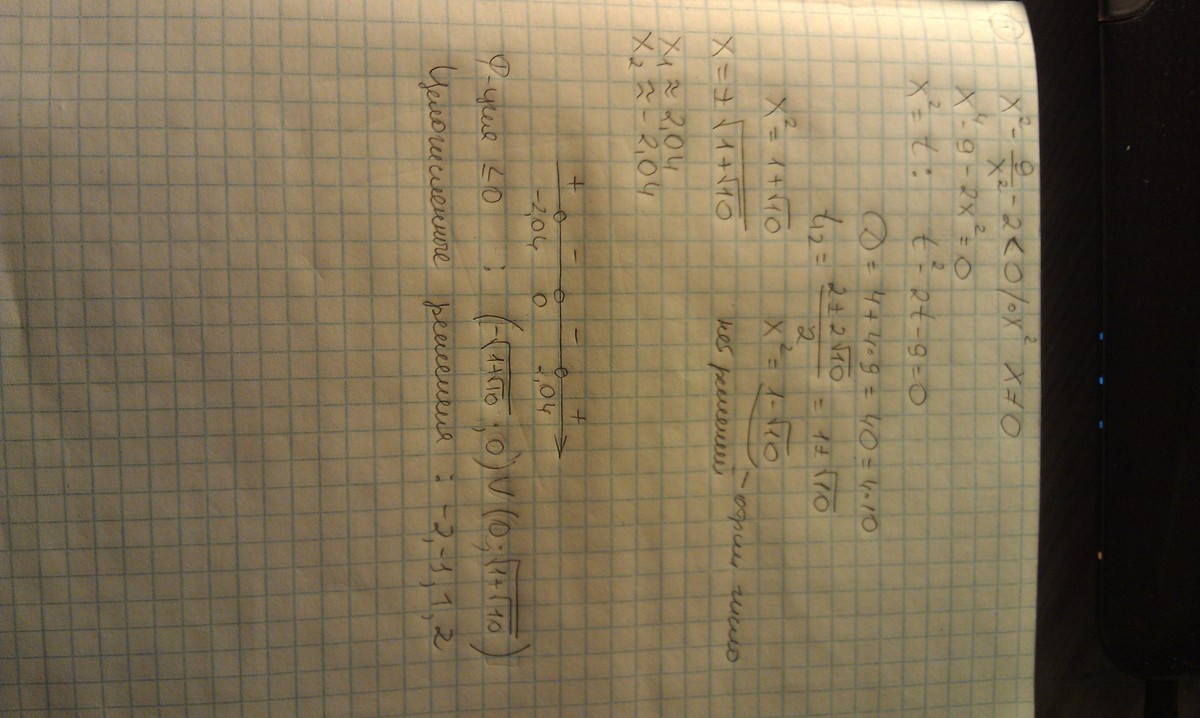 1
x² - 9/x² - 2 < 0 | • x²   x ≠ 0
x⁴ - 9 - 2x² = 0
x² = t :   t² - 2t - 9 = 0
D = 4 + 4•9 = 40 = 4•10
t₁,₂ = (2 ± 2√10)/2 = 1 ± √10
x² = 1+√10   x² = 1-√10 - отриц число
x = ± √(1+√10)   нет решений
x₁ ≈ 2,04
x₂ ≈ - 2,04
+ - - +
-2,04 0 2,04
Ф-ция ≤ 0 : (-√(1+√10) ; 0) ∨ (0; √(1+√10))
Целочисленные решения : -2, -1, 1, 2